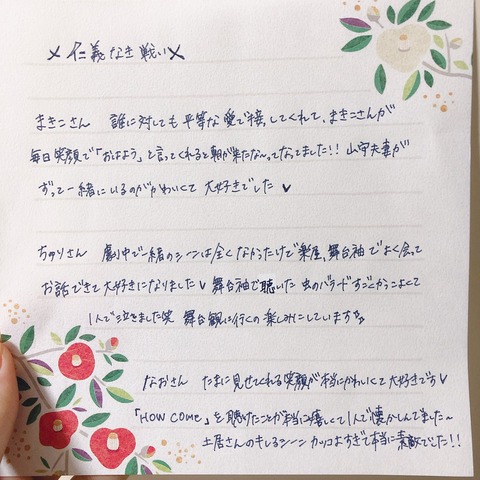 ×仁義なき戦い×
まきこさん 誰に対しても平等な愛で接してくれて、まきこさんが
毎日笑顔で「おはよう」と言ってくれると朝が来たな〜ってなってました!! 山守夫妻が
ずっと一緒にいるのがかわいくて 大好きでした♥
ちゅりさん 劇中で一緒のシーンは全くなかったけど楽屋、舞台袖でよく会って
お話できて大好きになりました♥ 舞台袖で聴いた 虫のバラードすごくかっこよくて
1人で泣きました笑 舞台観に行くの楽しみにしています☆
なおさん たまに見せてくれる笑顔が本当にかわいくて大好きです♥
「HOW COME」を聴けたことが本当に嬉しくて1人で懐かしんでました〜
土居さんのキレるシーン カッコよすぎて本当に素敵でした!!